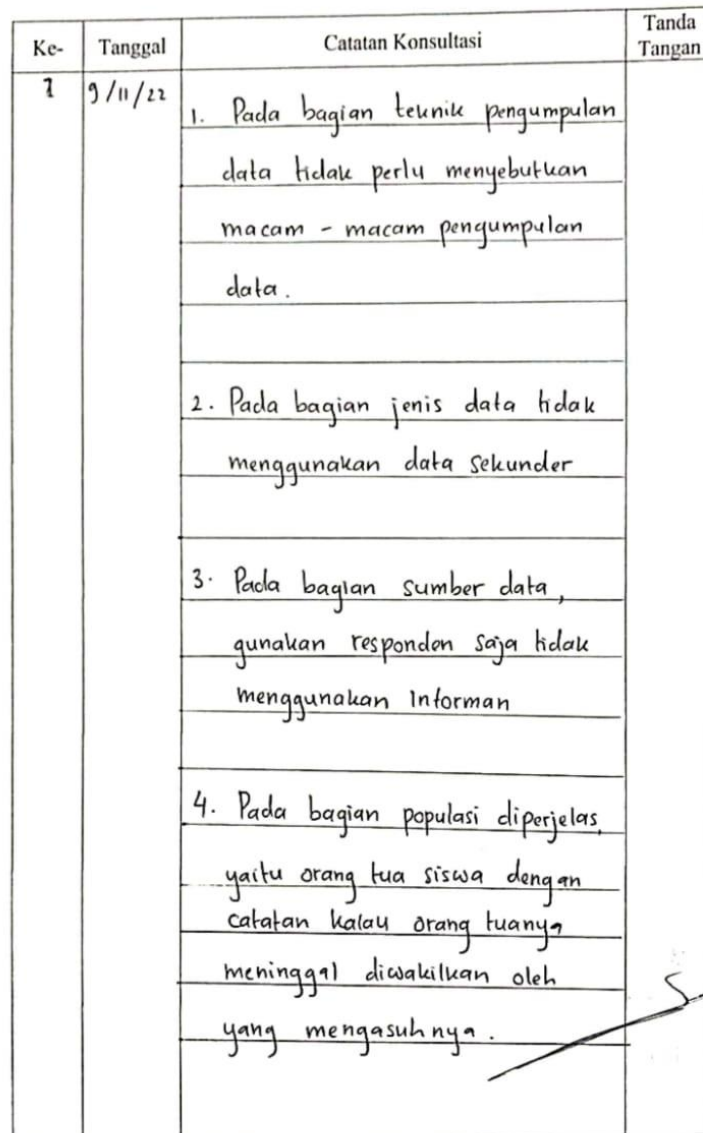 Ke- Tanggal Catatan Konsultasi Tanda Tangan
1 9/11/22
1. Pada bagian teknik pengumpulan
data tidak perlu menyebutkan
macam - macam pengumpulan
data.
2. Pada bagian jenis data tidak
menggunakan data sekunder
3. Pada bagian sumber data,
gunakan responden saja tidak
menggunakan Informan
4. Pada bagian populasi diperjelas,
yaitu orang tua siswa dengan
catatan kalau orang tuanya
meninggal diwakilkan oleh
yang mengasuhnya.